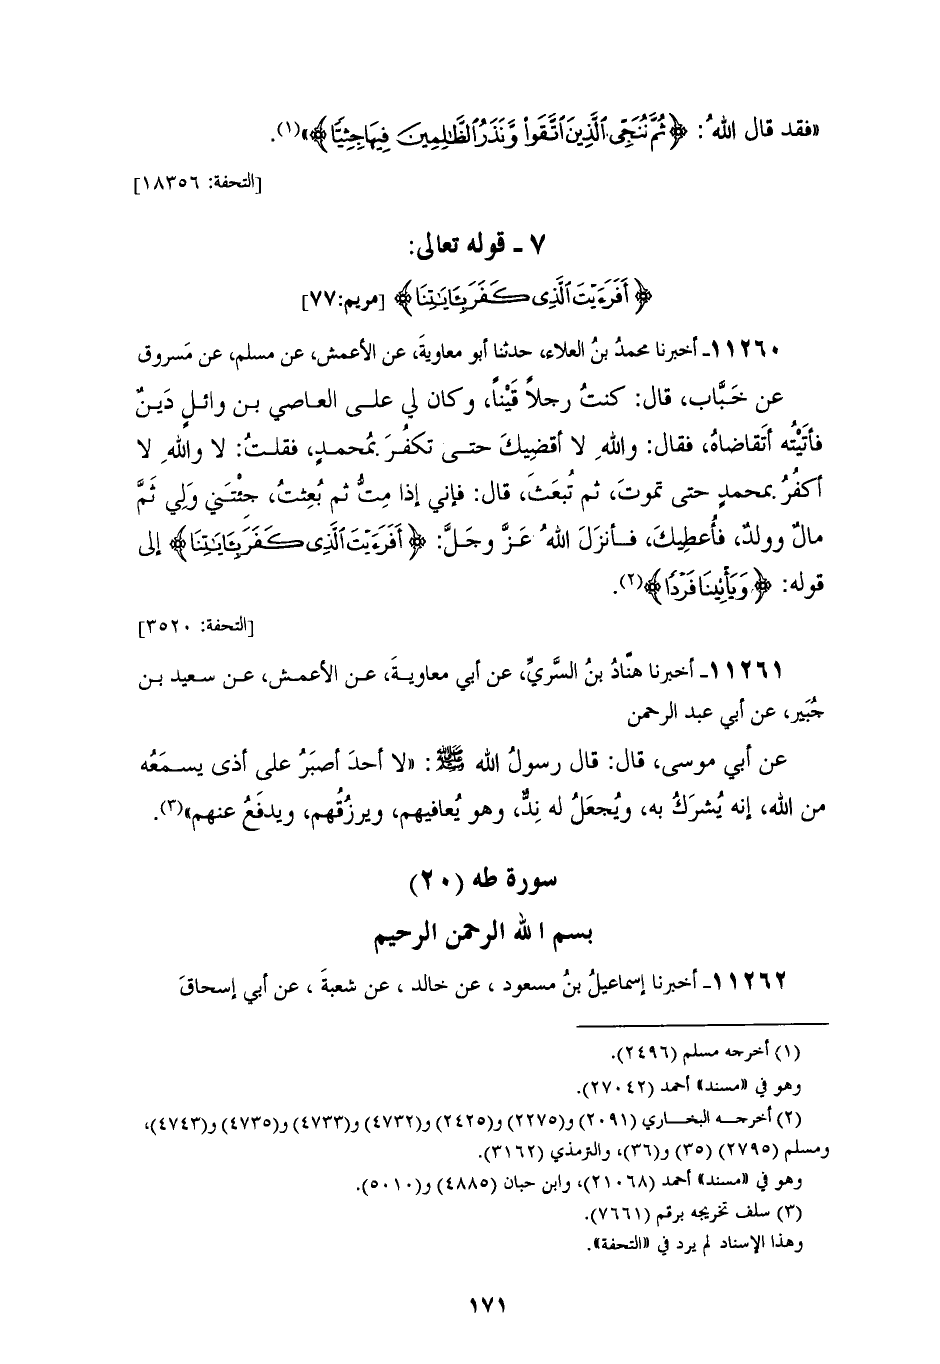 «فقد قال اللهُ: ﴿ثُمَّ نُنَجِّي الَّذِينَ اتَّقَوا وَّنَذَرُ الظَّالِمِينَ فِيهَا جِثِيًّا﴾»(١).
[التحفة: ١٨٣٥٦]
٧ ـ قوله تعالى:
﴿أَفَرَءَيْتَ الَّذِي كَفَرَ بِئَايَٰتِنَا﴾ [مريم:٧٧]
١١٢٦٠ـ أخبرنا محمدُ بنُ العلاء، حدثنا أبو معاويةَ، عن الأعمش، عن مسلم، عن مَسروق
عن خَبَّاب، قال: كنتُ رجلاً قَيْناً، وكان لي على العاصي بن وائلٍ دَينٌ
فأتَيْتُه أتَقاضاهُ، فقال: واللهِ لا أقضِيكَ حتى تكفُرَ بمُحمدٍ، فقلتُ: لا واللهِ لا
أكفُرُ بمحمدٍ حتى تموتَ، ثم تُبعَثَ، قال: فإني إذا مِتُّ ثم بُعِثتُ، جِئْتَني وَلِي ثَمَّ
مالٌ وولدٌ، فأُعطِيكَ، فأنزَلَ اللهُ عَزَّ وجَلَّ: ﴿أَفَرَءَيْتَ الَّذِي كَفَرَ بِئَايَٰتِنَا﴾ إلى
قوله: ﴿وَيَأْتِينَا فَرْدًا﴾(٢).
[التحفة: ٣٥٢٠]
١١٢٦١ـ أخبرنا هنَّادُ بنُ السَّرِيِّ، عن أبي معاويةَ، عن الأعمش، عن سعيد بن
جُبَير، عن أبي عبد الرحمن
عن أبي موسى، قال: قال رسولُ الله ﷺ: «لا أحدَ أصبَرُ على أذى يسمَعُه
من الله، إنه يُشرَكُ به، ويُجعَلُ له نِدٌّ، وهو يُعافيهم، ويرزُقُهم، ويدفَعُ عنهم»(٣).
سورة طه (٢٠)
بسم الله الرحمن الرحيم
١١٢٦٢ـ أخبرنا إسماعيلُ بنُ مسعود ، عن خالد ، عن شعبةَ ، عن أبي إسحاقَ
(١) أخرجه مسلم (٢٤٩٦).
وهو في «مسند» أحمد (٢٧٠٤٢).
(٢) أخرجه البخاري (٢٠٩١) و(٢٢٧٥) و(٢٤٢٥) و(٤٧٣٢) و(٤٧٣٣) و(٤٧٣٥) و(٤٧٤٣)،
ومسلم (٢٧٩٥) (٣٥) و(٣٦)، والترمذي (٣١٦٢).
وهو في «مسند» أحمد (٢١٠٦٨)، وابن حبان (٤٨٨٥) و(٥٠١٠).
(٣) سلف تخريجه برقم (٧٦٦١).
وهذا الإسناد لم يرد في «التحفة».
١٧١